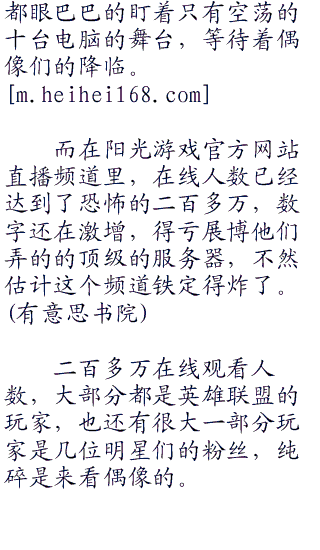 都眼巴巴的盯着只有空荡的
十台电脑的舞台，等待着偶
像们的降临。
[m.heihei168.com]
而在阳光游戏官方网站
直播频道里，在线人数已经
达到了恐怖的二百多万，数
字还在激增，得亏展博他们
弄的的顶级的服务器，不然
估计这个频道铁定得炸了。
(有意思书院)
二百多万在线观看人
数，大部分都是英雄联盟的
玩家，也还有很大一部分玩
家是几位明星们的粉丝，纯
碎是来看偶像的。